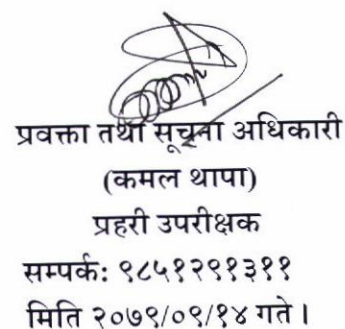 प्रवक्ता तथा सूचना अधिकारी
(कमल थापा)
प्रहरी उपरीक्षक
सम्पर्क: ९८५१२९१३११
मिति २०७९/०९/१४ गते ।